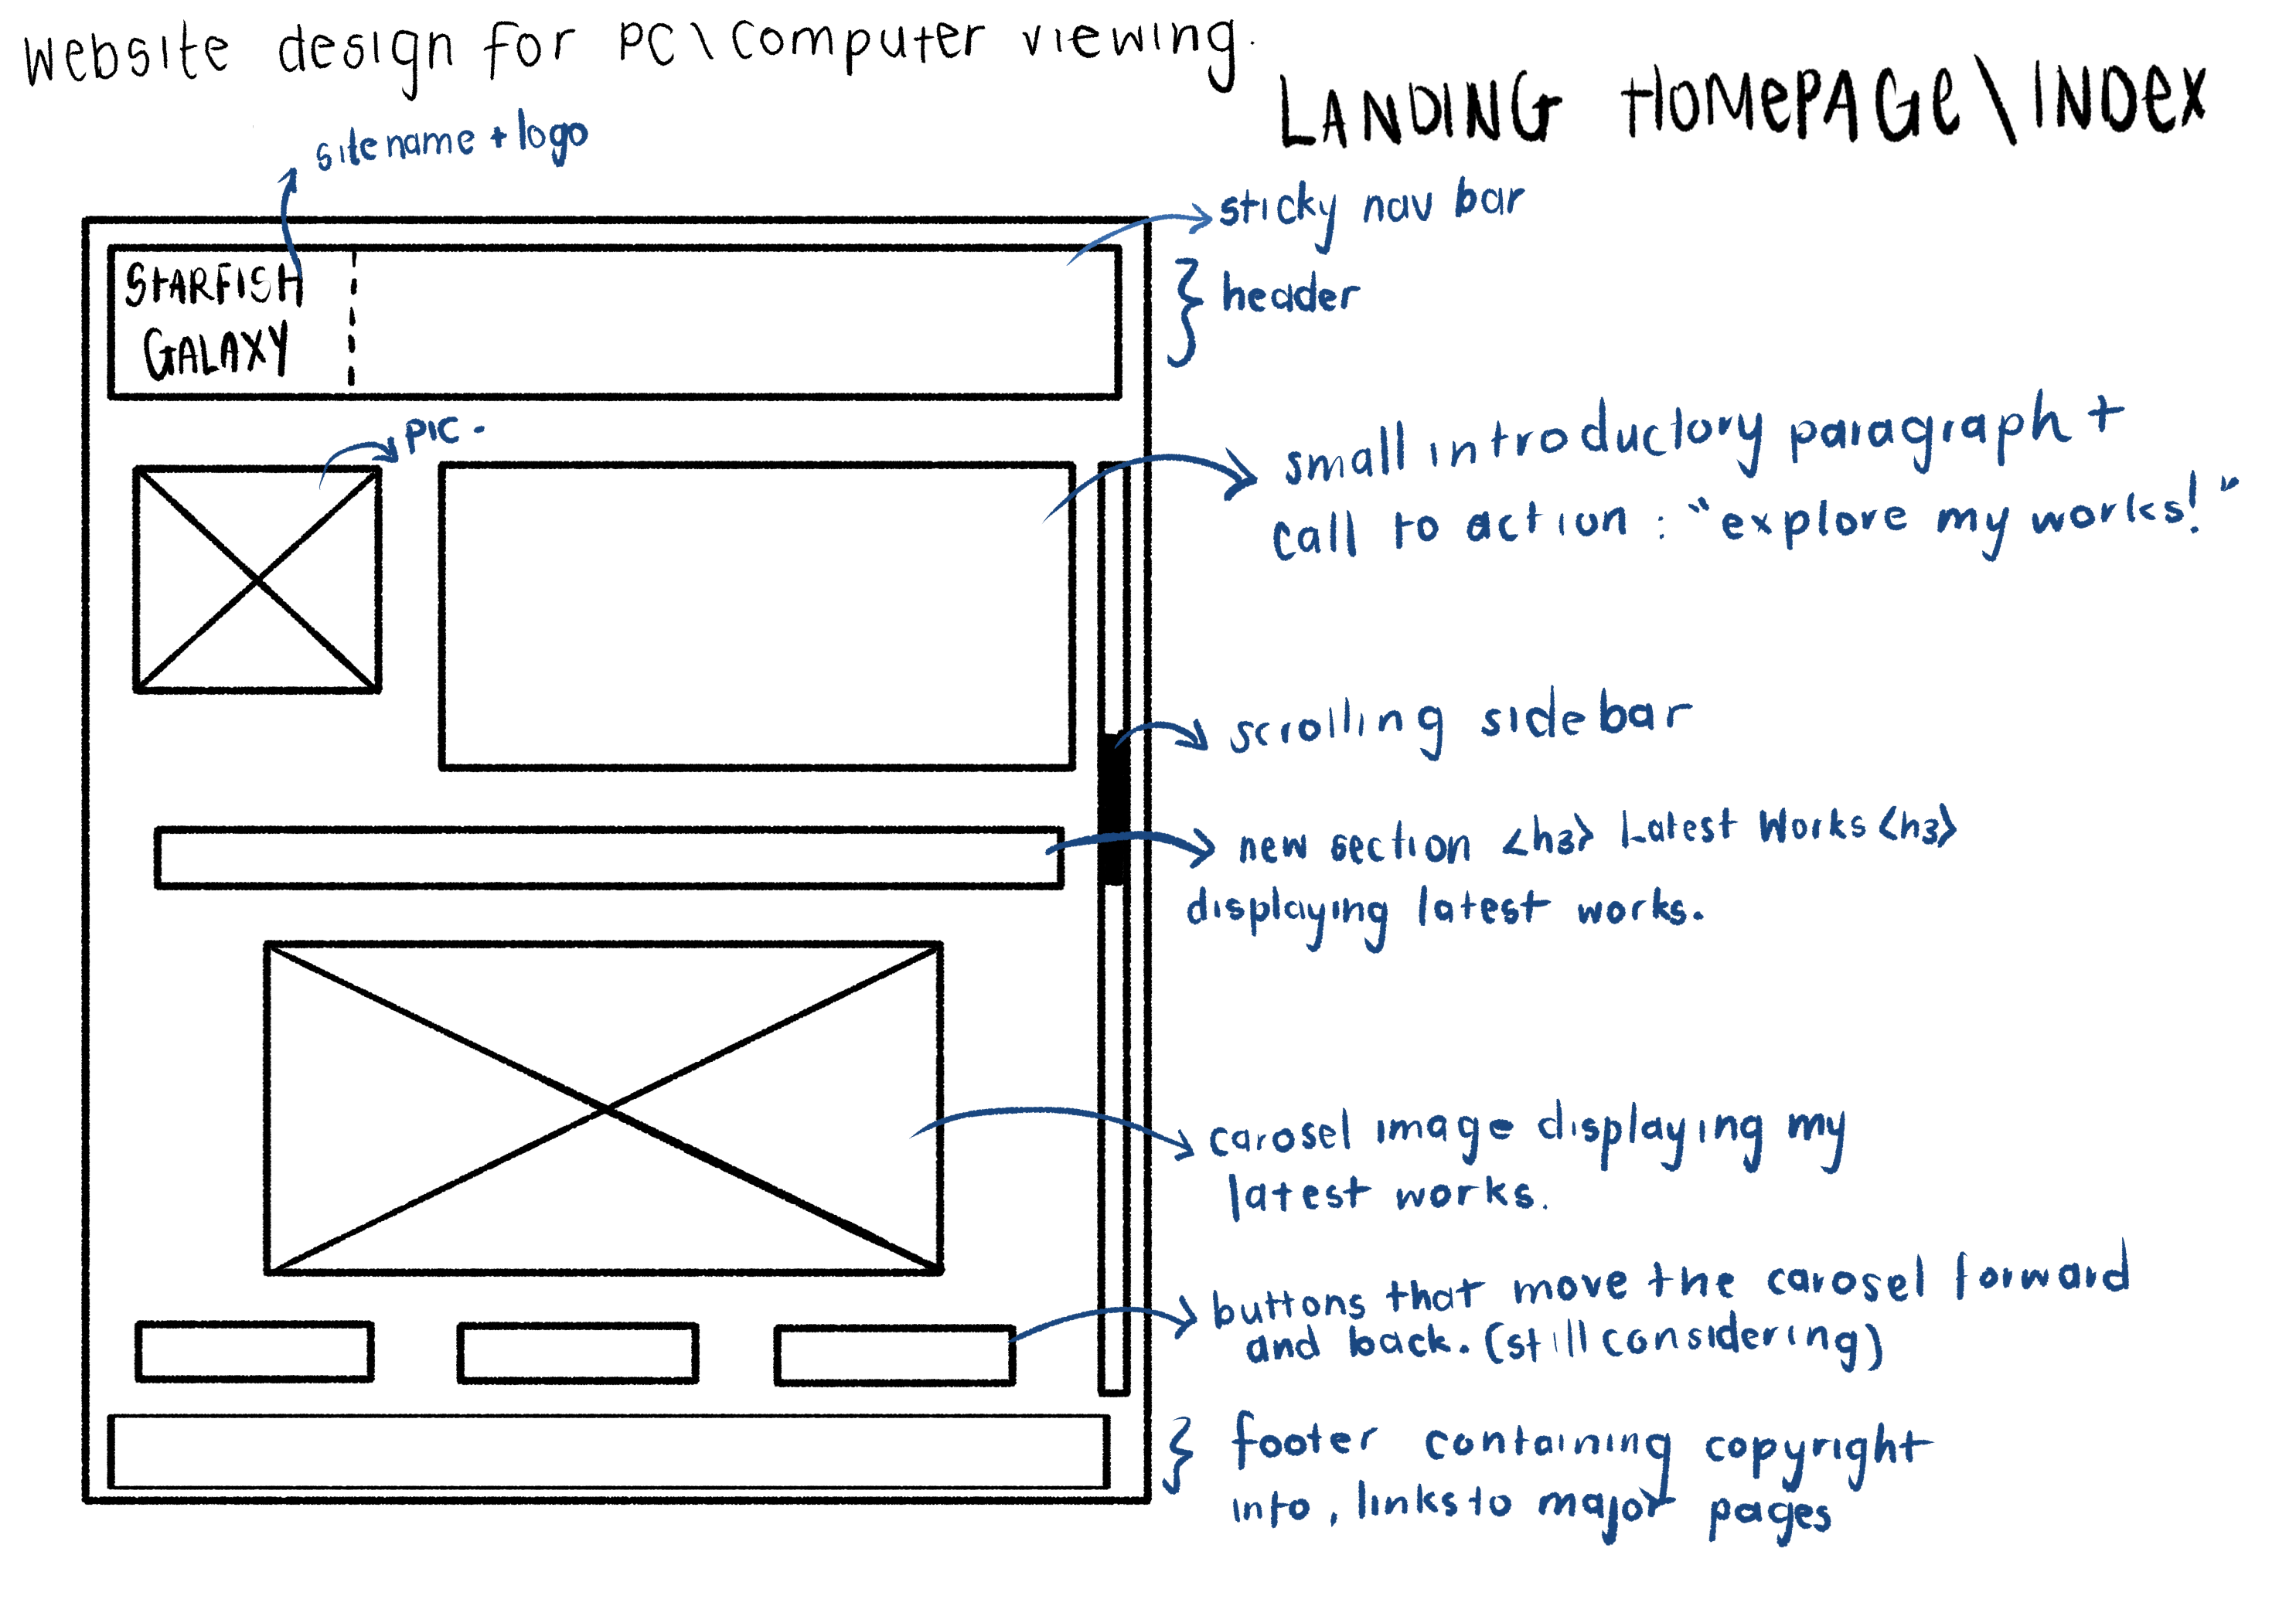 Website design for PC\Computer viewing.
LANDING HOMEPAGE\INDEX
site name + logo
sticky nav bar
header
STARFISH
GALAXY
PIC.
small introductory paragraph +
call to action : "explore my works!"
scrolling sidebar
new section <h3> Latest Works <h3>
displaying latest works.
carosel image displaying my
latest works.
buttons that move the carosel forward
and back. (still considering)
footer containing copyright
info, links to major pages